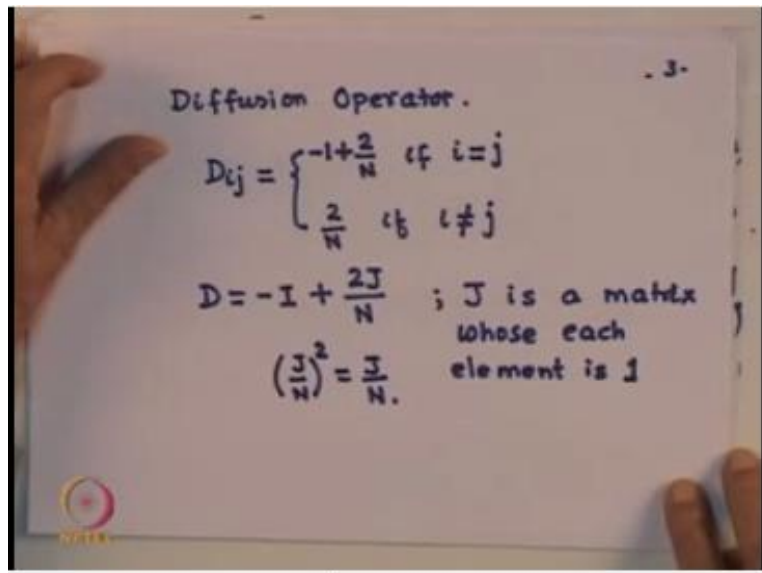 - 3-
Diffusion Operator.
Dij = { -1+2/N if i=j
2/N if i≠j
D = -I + 2J/N ; J is a matrix
whose each
(J/N)² = J/N. element is 1
NPTEL